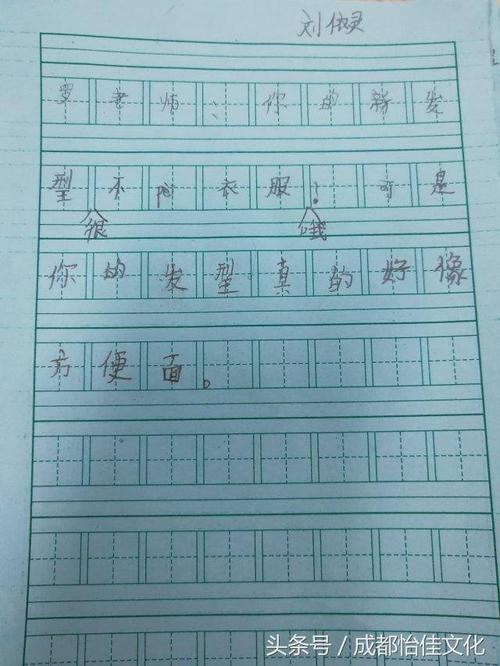 刘依灵
罗老师、你的新发
型不阿衣服！可是
很 哦
你的发型真的好像
方便面。
头条号／成都怡佳文化